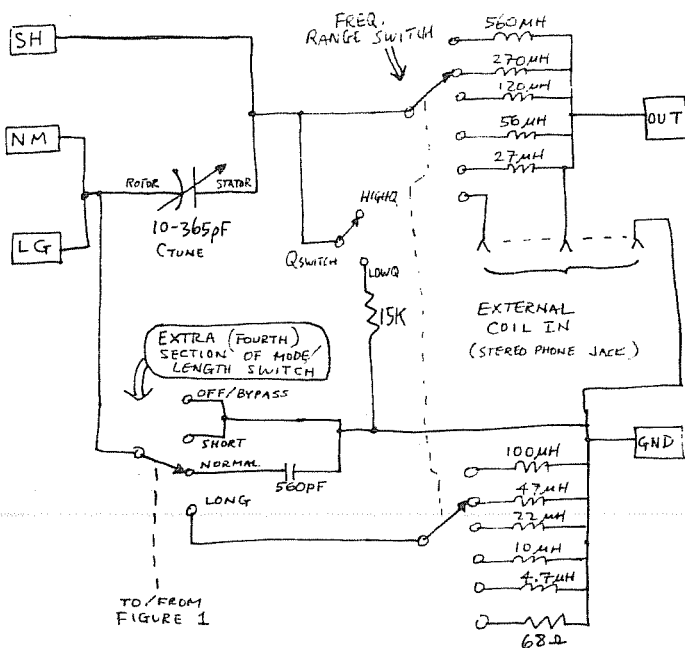 SH
FREQ.
RANGE SWITCH
560µH
270µH
120µH
OUT
56µH
27µH
NM
ROTOR
STATOR
LG
10-365pF
CTUNE
HIGHQ
QSWITCH
LOWQ
15K
EXTERNAL
COIL IN
(STEREO PHONE JACK)
EXTRA (FOURTH)
SECTION OF MODE/
LENGTH SWITCH
OFF/BYPASS
SHORT
NORMAL
560PF
LONG
GND
100µH
47µH
22µH
10µH
4.7µH
68Ω
TO/FROM
FIGURE 1